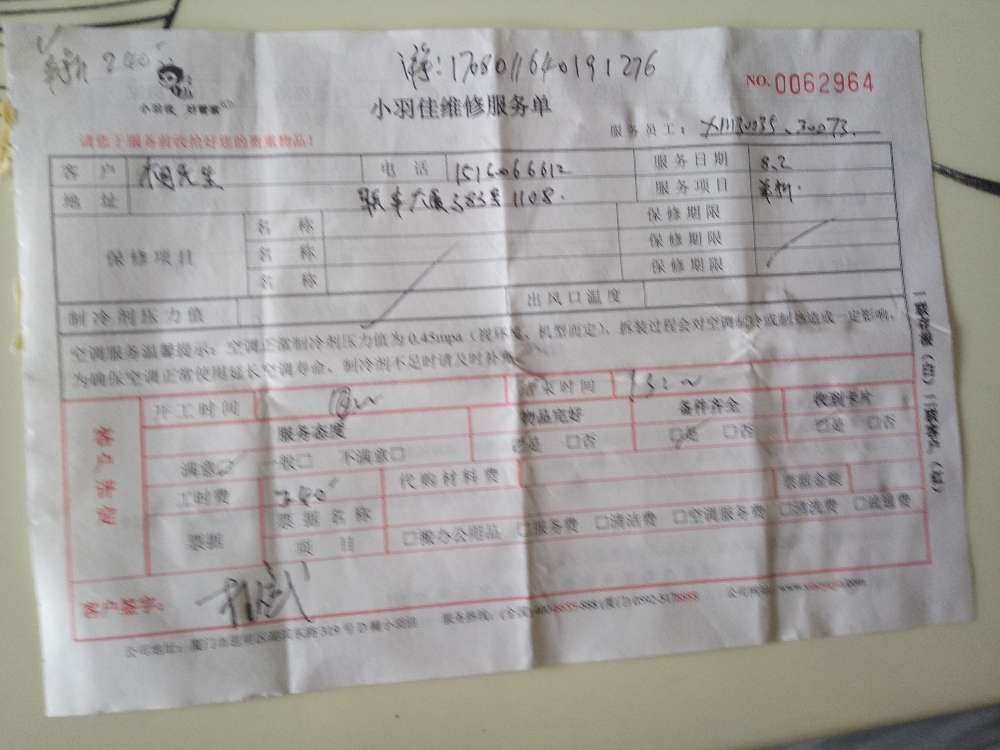 240
小羽佳 好管家
17080116401912​76
NO. 0062964
小羽佳维修服务单
请您于服务前收拾好您的贵重物品!
服务员工: XM30035、30073
客户 电话 服务日期 8.2
地址 383号1108. 服务项目
保修项目 名称 保修期限
名称 保修期限
名称 保修期限
制冷剂压力值 出风口温度
空调服务温馨提示: 空调正常制冷剂压力值为0.45mpa (视环境、机型而定), 拆装过程会对空调制冷或制热造成一定影响,
为确保空调正常使用延长空调寿命, 制冷剂不足时请及时补充
客户评定
开工时间 结束时间
服务态度 物品完好 备件齐全 收到卡片
满意□ 一般□ 不满意□ 是 □否 □是 □否 是 □否
工时费 240 代购材料费 票据金额
票据 票据名称
项目 □搬办公用品 □服务费 □清洁费 □空调服务费 □清洗费 □疏通费
客户签字:
公司地址: 厦门市思明区 319号
服务热线: (全国) (厦门)
公司网址:
一联存根(白) 二联客户(红)